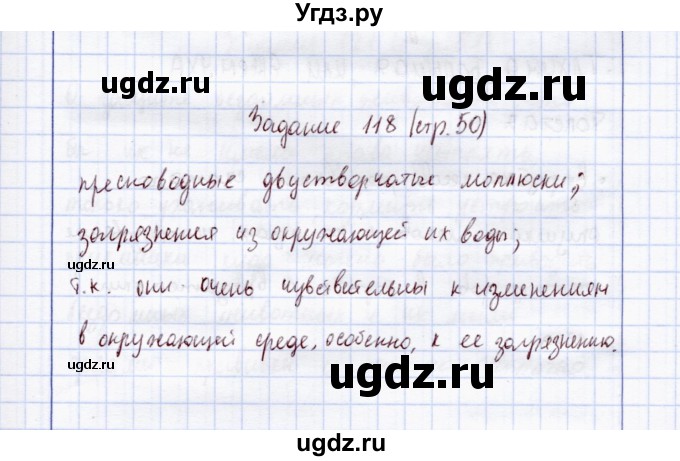 Угдз.ру
ugdz.ru
ugdz.ru
Задание 118 (стр.50)
ugdz.ru
пресноводные двустворчатые моллюски;
загрязнения из окружающей их воды;
ugdz.ru
т.к. они очень чувствительны к изменениям
в окружающей среде, особенно, к ее загрязнению.
ugdz.ru
ugdz.ru